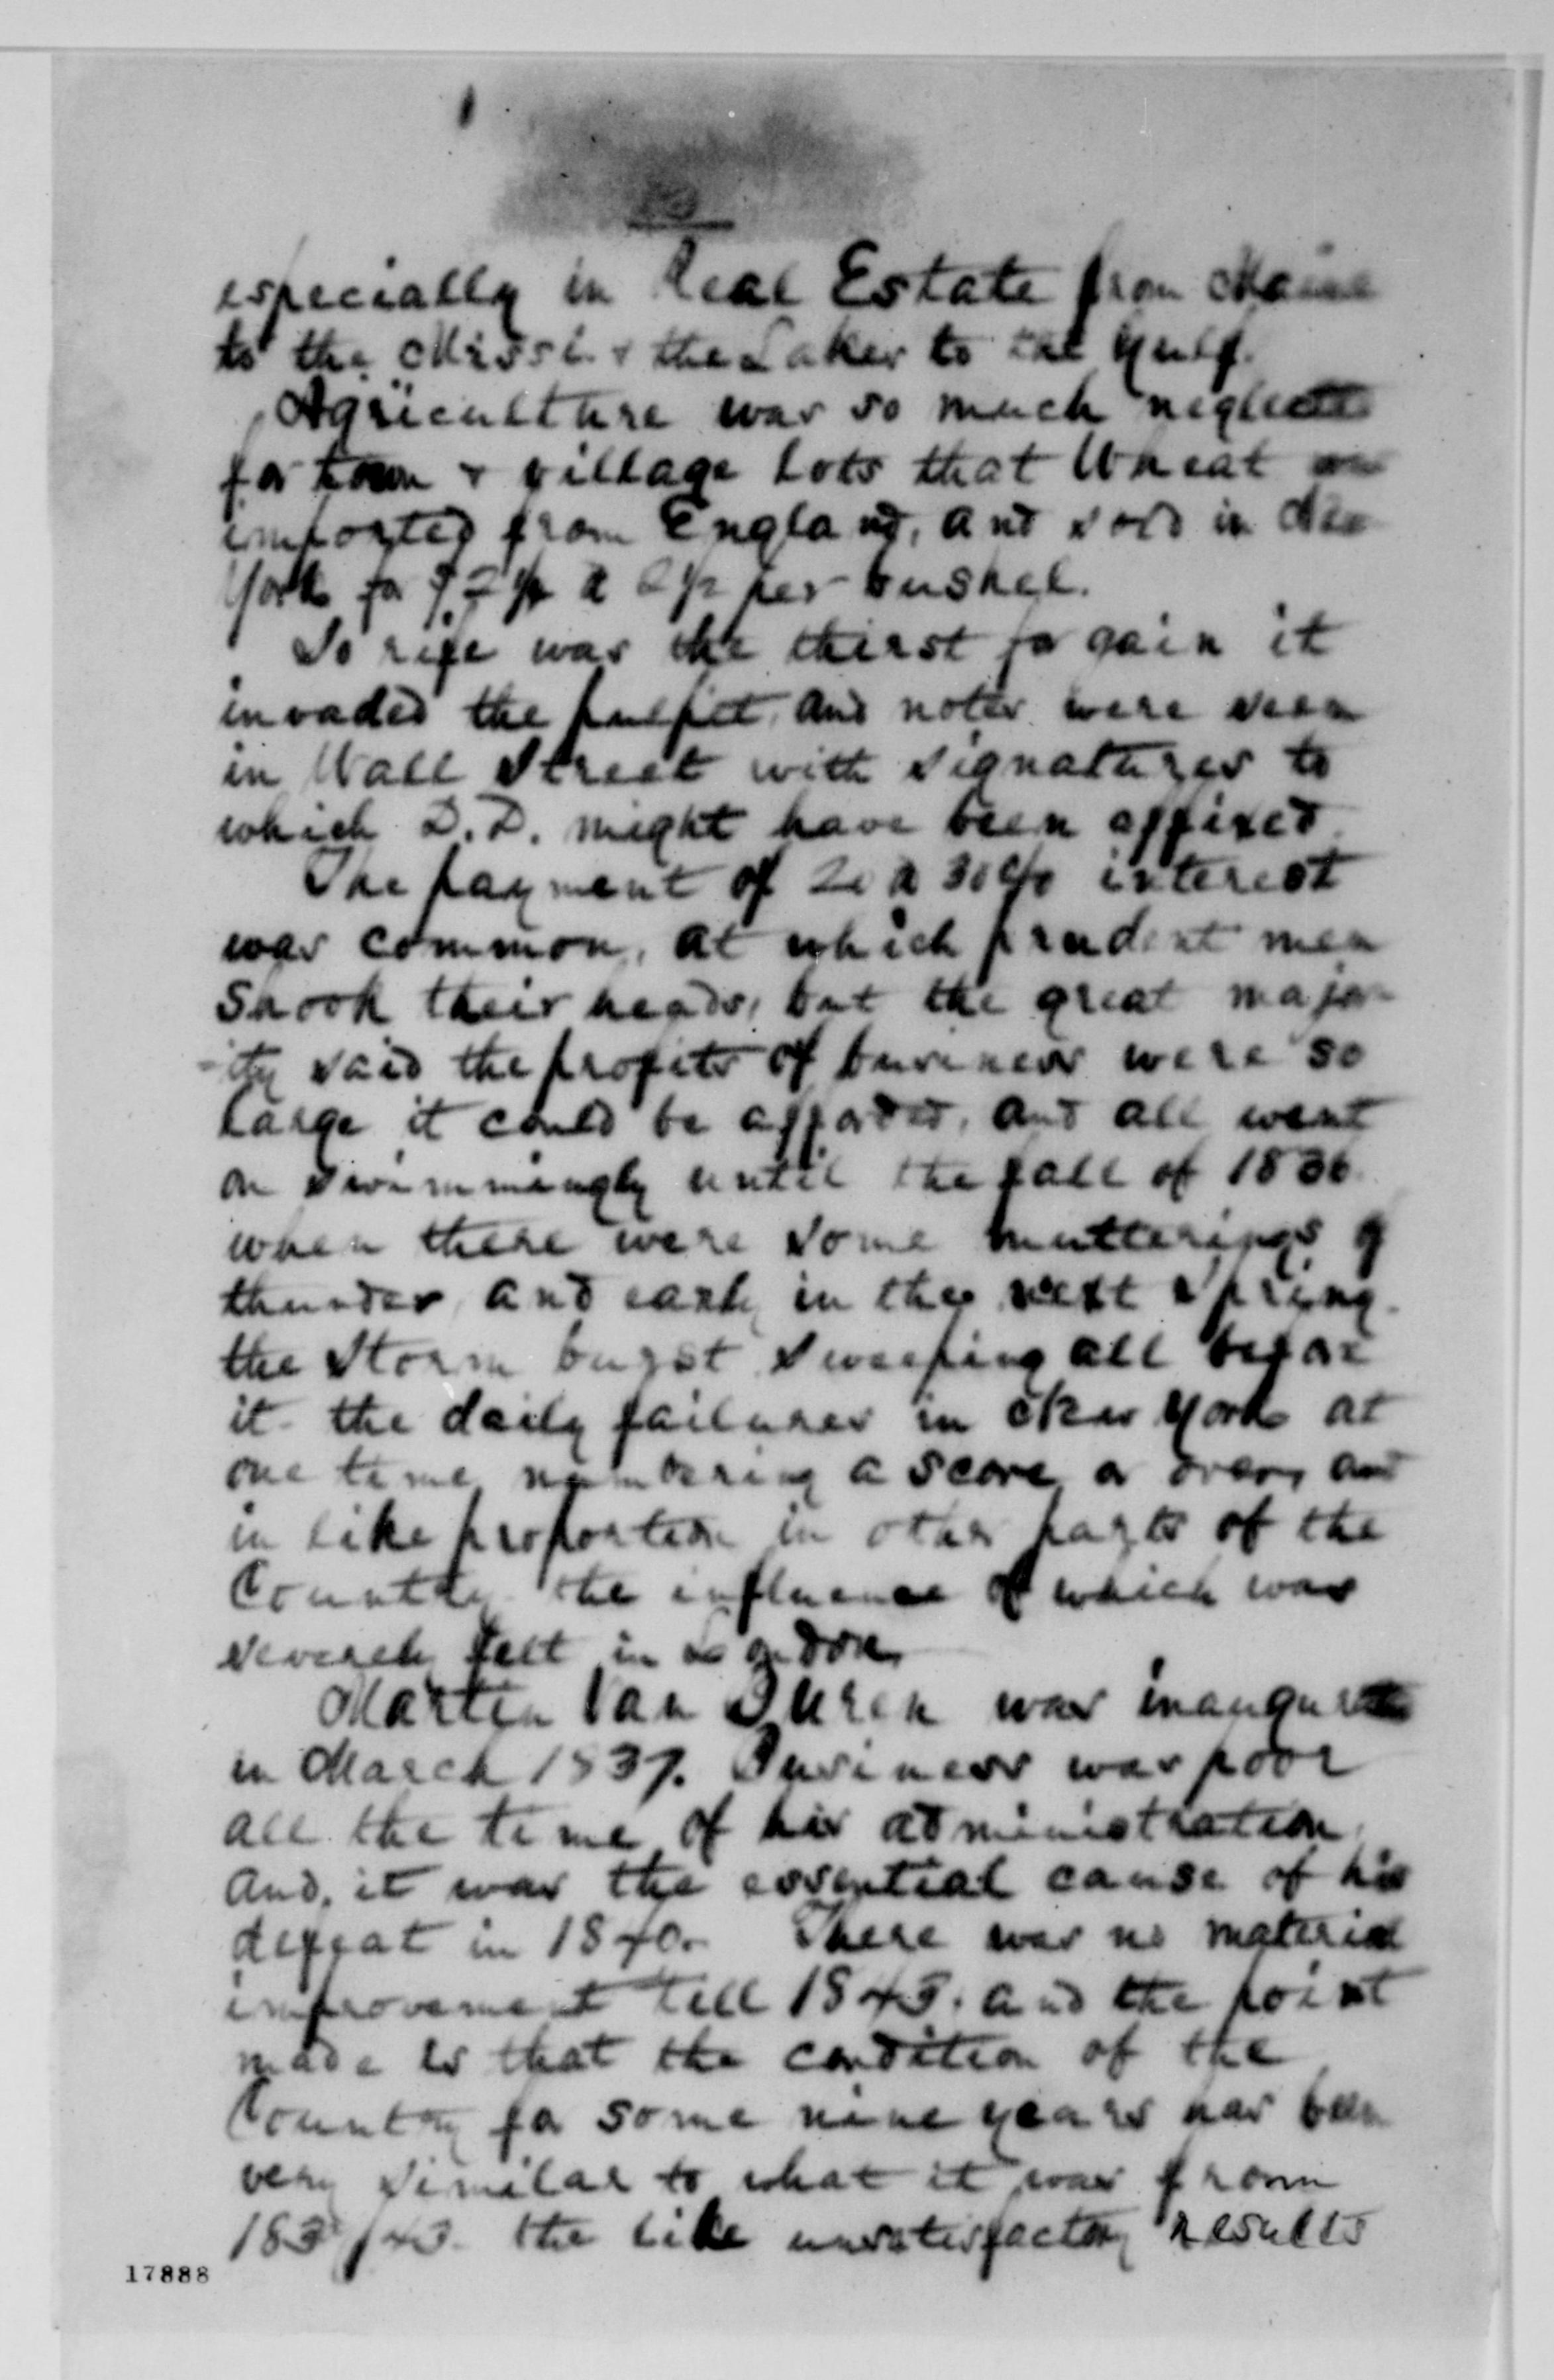 especially in Real Estate from Maine
to the Missi. & the Lakes to the Gulf.
Agriculture was so much neglected
for town & village lots that Wheat was
imported from England, and sold in New
York for $2 a 2½ per bushel.
So rife was the thirst for gain it
invaded the pulpit, and notes were seen
in Wall Street with signatures to
which D.D. might have been affixed.
The payment of 20 a 30 % interest
was common, at which prudent men
shook their heads, but the great major-
-ity said the profits of business were so
large it could be afforded, and all went
on swimmingly until the fall of 1836
when there were some mutterings of
thunder, and early in the next Spring
the Storm burst sweeping all before
it the daily failures in New York at
one time numbering a score or over, and
in like proportion in other parts of the
Country the influence of which was
severely felt in London.
Martin Van Buren was inaugurated
in March 1837. Business was poor
all the time of his administration,
and, it was the essential cause of his
defeat in 1840. There was no material
improvement till 1843. and the point
made is that the condition of the
Country for some nine years has been
very similar to what it was from
1837/43. the like unsatisfactory results
17888